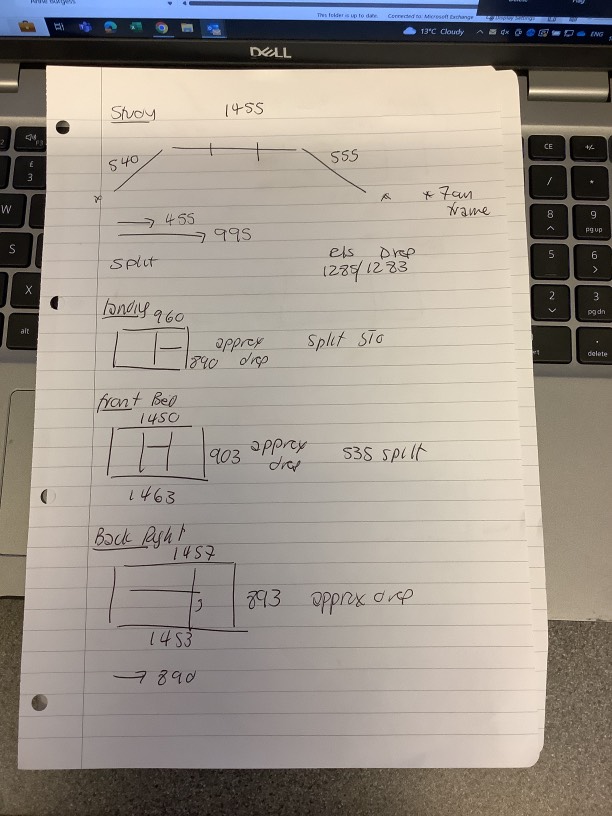 This folder is up to date. Connected to: Microsoft Exchange Display Settings
13°C Cloudy ENG
DELL
Study 1455
540 555
* 7cm
frame
→ 455
→ 995
Split
Drop
1285/1283
Landing 960
approx
890 drop
Split
Front Bed
1450
903 approx
drop
535 split
1463
Back Right
1457
893 approx drop
1453
→ 890
£
3
W
S
X
alt
CE
+/-
/
*
8
9
pg up
5
6
2
3
pg dn
.
delete